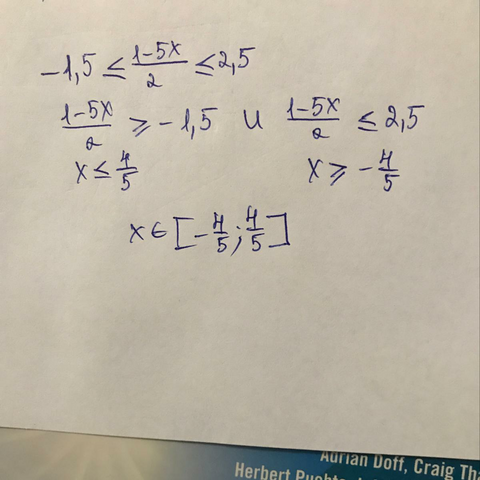 -1,5 ≤ (1-5x)/2 ≤ 2,5
(1-5x)/2 ≥ -1,5 и (1-5x)/2 ≤ 2,5
x ≤ 4/5 x ≥ -4/5
x ∈ [-4/5; 4/5]
Adrian Doff, Craig Tha
Herbert Puchta